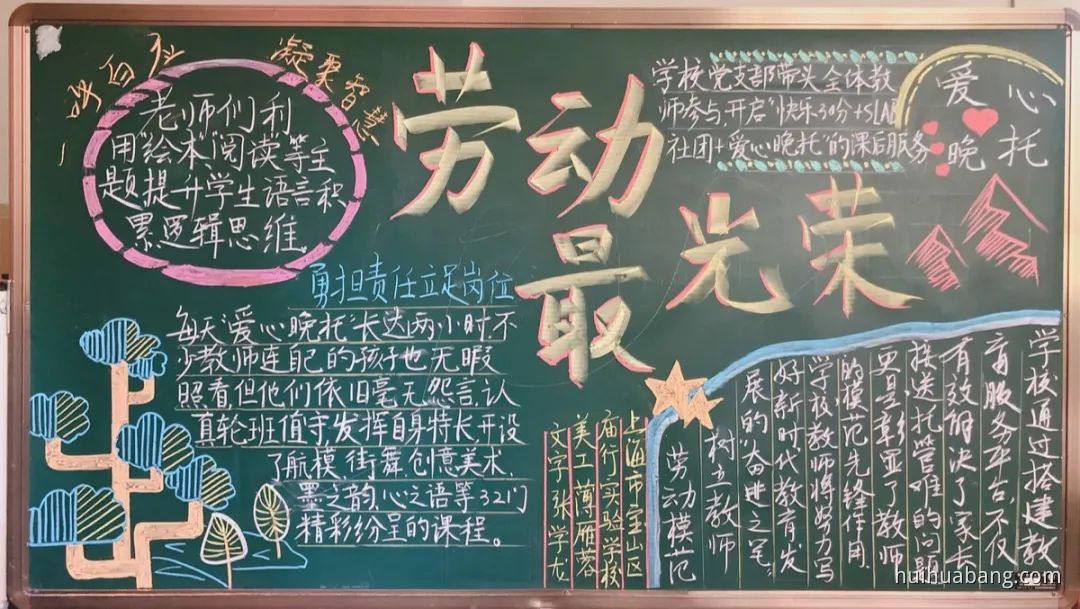 劳动
最
光荣
凝聚智慧
老师们利
用"绘本"阅读等主
题提升学生语言积
累逻辑思维。
学校党支部带头全体教
师参与,开启"快乐30分+SLAB
社团+爱心晚托"的课后服务
爱心
晚托
勇担责任立足岗位
每天"爱心晚托"长达两小时,不
少教师连自己的孩子也无暇
照看但他们依旧毫无怨言,认
真轮班值守,发挥自身特长开设
了航模、街舞创意美术、
墨之韵、心之语等32门
精彩纷呈的课程。
学校通过搭建教
育服务平台不仅
有效解决了家长
接送托管难的问题
更是彰显了教师
的模范先锋作用.
学校教师将努力写
好新时代教育发
展的"奋进之笔"
树立教师
劳动模范
上海市宝山区
庙行实验学校
美工薄雁蓉
文字张学龙
huihuabang.com